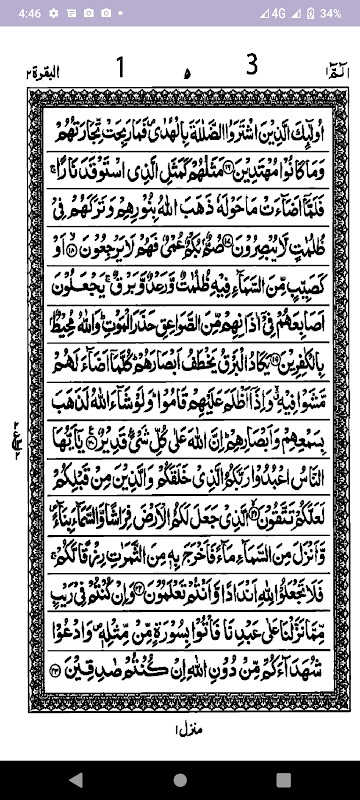 4:46 4G 34%
البقرة ٢ 1 ٥ 3 الٓمّٓ ١
اُولٰٓئِكَ الَّذِيْنَ اشْتَرَوُا الضَّلٰلَةَ بِالْهُدٰى فَمَا رَبِحَتْ تِّجَارَتُهُمْ
وَمَا كَانُوْا مُهْتَدِيْنَ ﴿١٦﴾ مَثَلُهُمْ كَمَثَلِ الَّذِى اسْتَوْقَدَ نَارًا ۚ
فَلَمَّآ اَضَآءَتْ مَا حَوْلَهٗ ذَهَبَ اللّٰهُ بِنُوْرِهِمْ وَتَرَكَهُمْ فِىْ
ظُلُمٰتٍ لَّا يُبْصِرُوْنَ ﴿١٧﴾ صُمٌّۢ بُكْمٌ عُمْىٌ فَهُمْ لَا يَرْجِعُوْنَ ﴿١٨﴾ اَوْ
كَصَيِّبٍ مِّنَ السَّمَآءِ فِيْهِ ظُلُمٰتٌ وَّرَعْدٌ وَّبَرْقٌ ۚ يَجْعَلُوْنَ
اَصَابِعَهُمْ فِىْٓ اٰذَانِهِمْ مِّنَ الصَّوَاعِقِ حَذَرَ الْمَوْتِ ؕ وَاللّٰهُ مُحِيْطٌۢ
بِالْكٰفِرِيْنَ ﴿١٩﴾ يَكَادُ الْبَرْقُ يَخْطَفُ اَبْصَارَهُمْ ؕ كُلَّمَآ اَضَآءَ لَهُمْ
مَّشَوْا فِيْهِ ۙ وَاِذَآ اَظْلَمَ عَلَيْهِمْ قَامُوْا ؕ وَلَوْ شَآءَ اللّٰهُ لَذَهَبَ
بِسَمْعِهِمْ وَاَبْصَارِهِمْ ؕ اِنَّ اللّٰهَ عَلٰى كُلِّ شَىْءٍ قَدِيْرٌ ﴿٢٠﴾ يٰٓاَيُّهَا
النَّاسُ اعْبُدُوْا رَبَّكُمُ الَّذِىْ خَلَقَكُمْ وَالَّذِيْنَ مِنْ قَبْلِكُمْ
لَعَلَّكُمْ تَتَّقُوْنَ ﴿٢١﴾ الَّذِىْ جَعَلَ لَكُمُ الْاَرْضَ فِرَاشًا وَّالسَّمَآءَ بِنَآءً ۪
وَّاَنْزَلَ مِنَ السَّمَآءِ مَآءً فَاَخْرَجَ بِهٖ مِنَ الثَّمَرٰتِ رِزْقًا لَّكُمْ ۚ
فَلَا تَجْعَلُوْا لِلّٰهِ اَنْدَادًا وَّاَنْتُمْ تَعْلَمُوْنَ ﴿٢٢﴾ وَاِنْ كُنْتُمْ فِىْ رَيْبٍ
مِّمَّا نَزَّلْنَا عَلٰى عَبْدِنَا فَاْتُوْا بِسُوْرَةٍ مِّنْ مِّثْلِهٖ ۪ وَادْعُوْا
شُهَدَآءَكُمْ مِّنْ دُوْنِ اللّٰهِ اِنْ كُنْتُمْ صٰدِقِيْنَ ﴿٢٣﴾
منزل ١